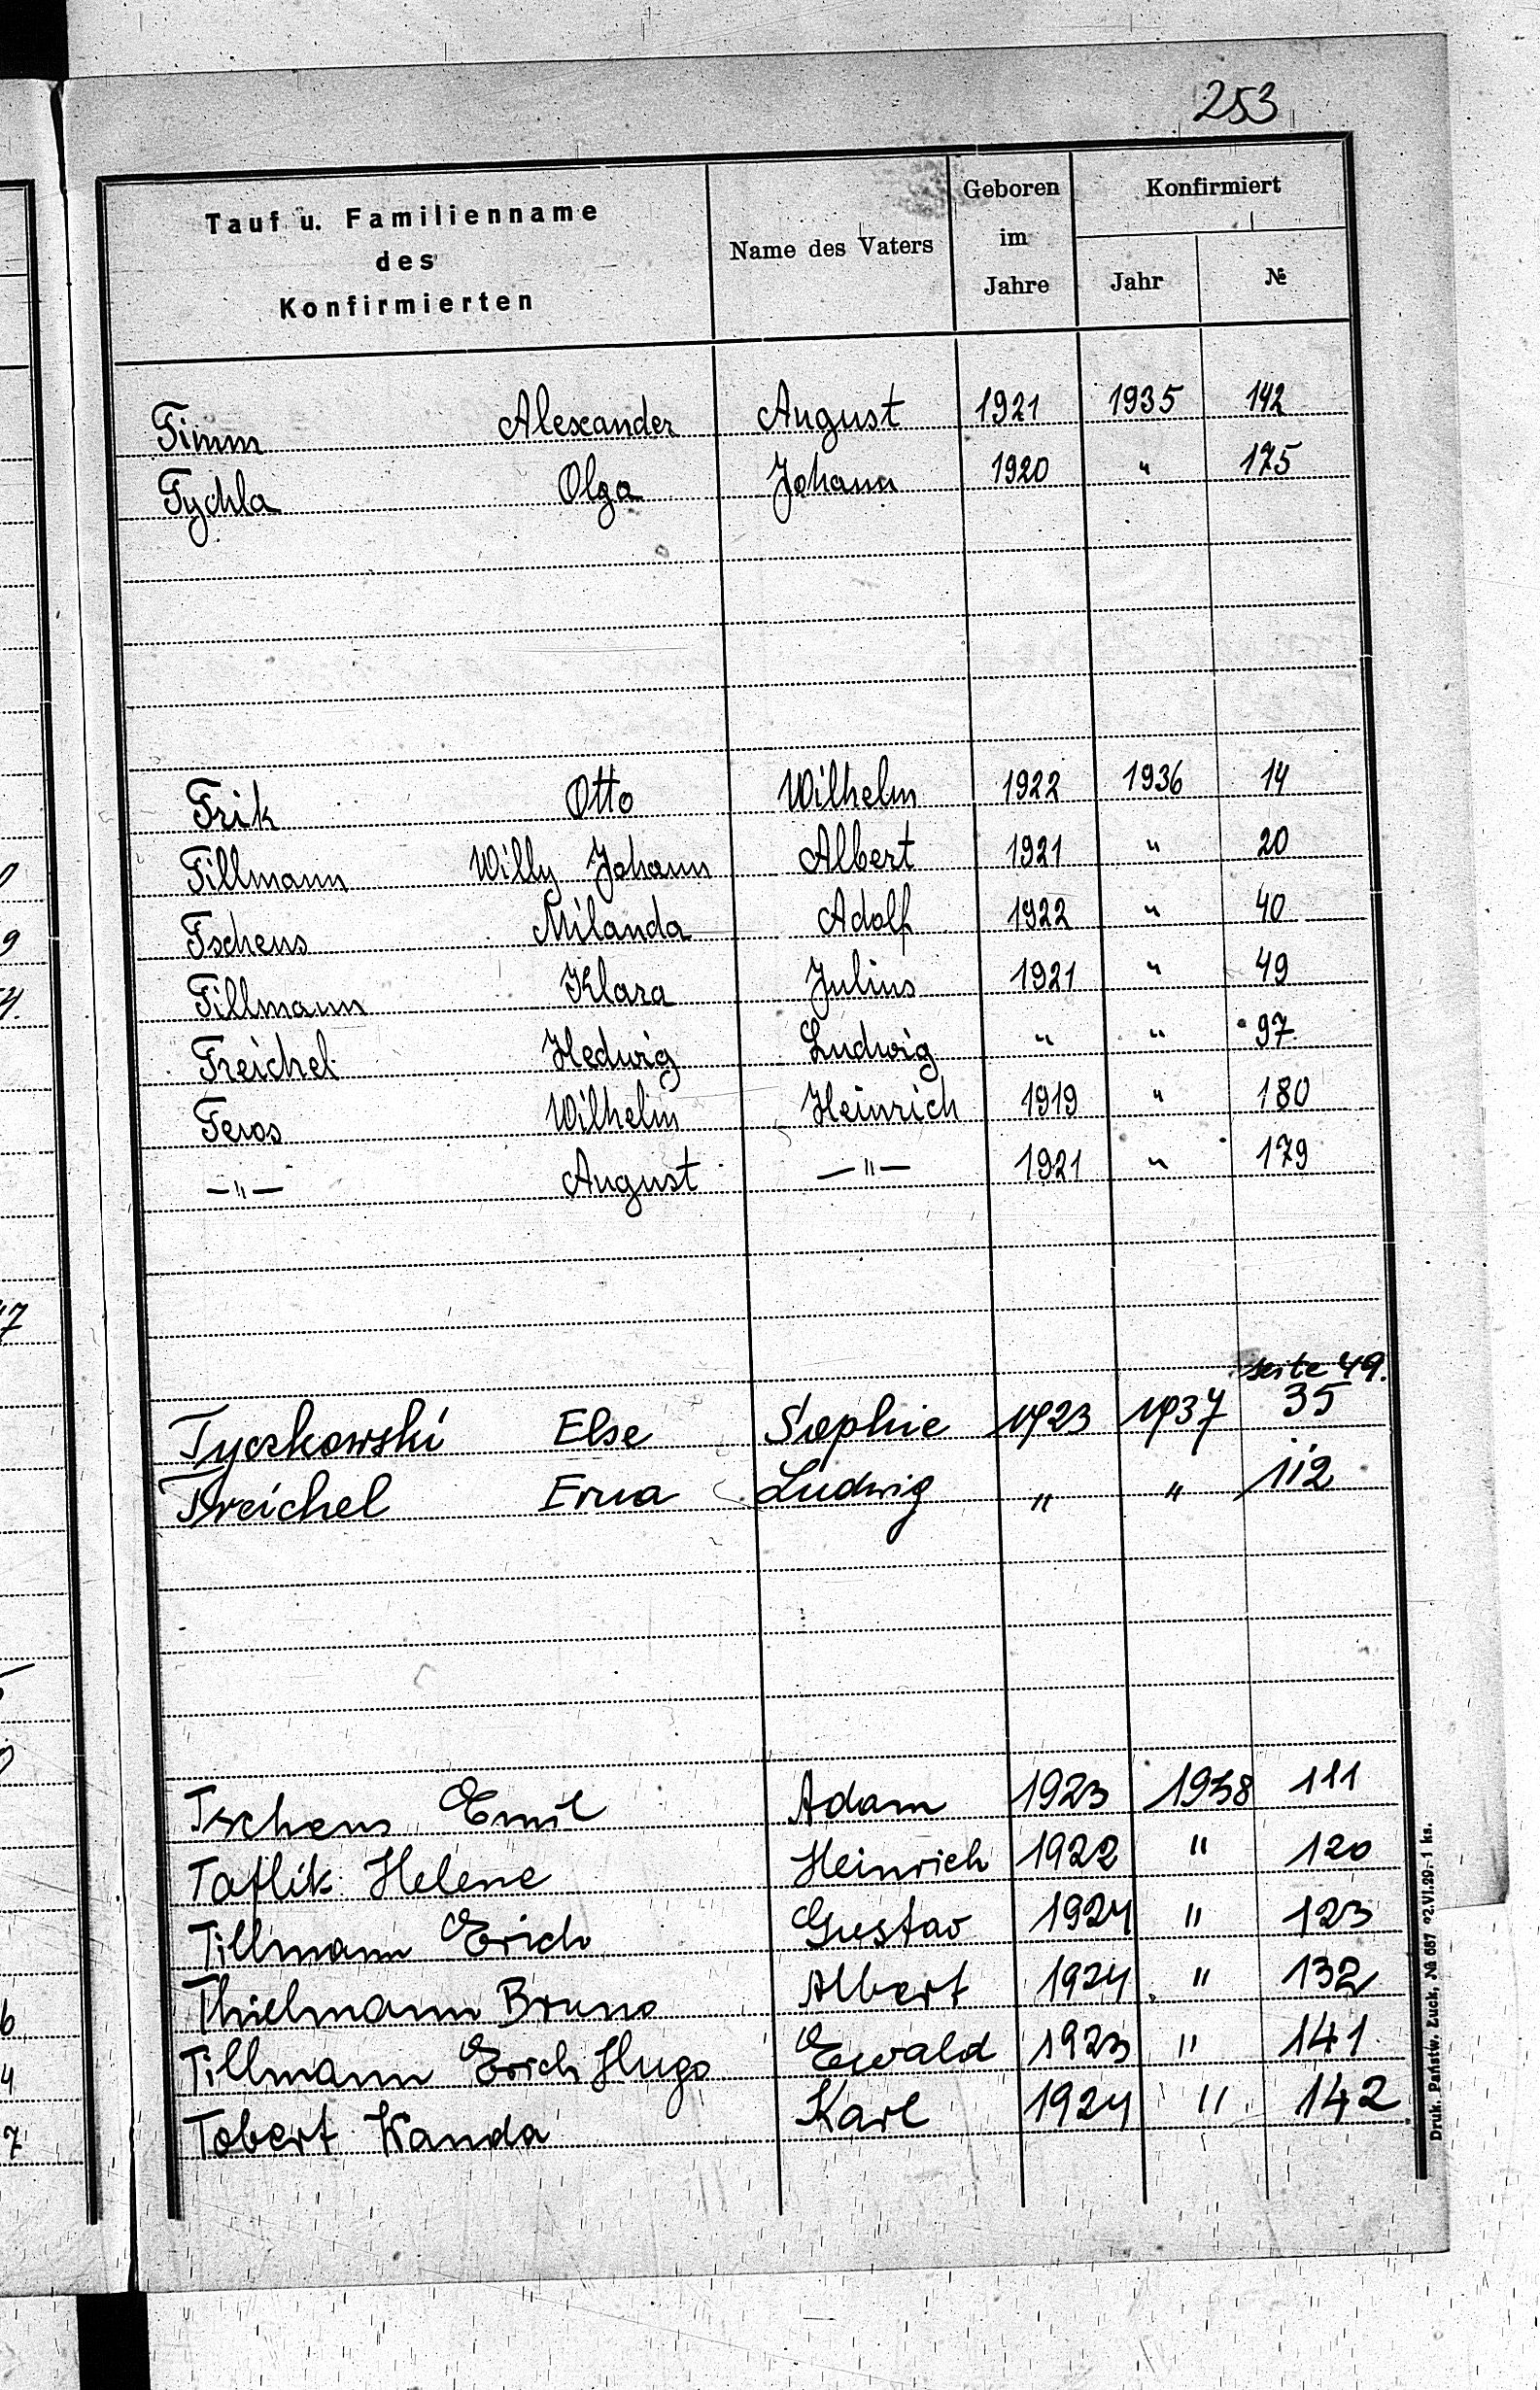 253
Tauf u. Familienname des Konfirmierten | Name des Vaters | Geboren im Jahre | Konfirmiert Jahr | №
Timm Alexander August 1921 1935 142
Tychla Olga Johann 1920 " 175
Trik Otto Wilhelm 1922 1936 14
Tillmann Willy Johann Albert 1921 " 20
Tschens Milanda Adolf 1922 " 40
Tillmann Klara Julius 1921 " 49
Treichel Hedwig Ludwig " " 97
Teros Wilhelm Heinrich 1919 " 180
—"— August —"— 1921 " 179
seite 49.
Tyczkowski Else Sophie 1923 1937 35
Treichel Erna Ludwig " " 112
Tschens Emil Adam 1923 1938 111
Taflik Helene Heinrich 1922 " 120
Tillmann Erich Gustav 1924 " 123
Thielmann Bruno Albert 1924 " 132
Tillmann Erich Hugo Ewald 1923 " 141
Tobert Wanda Karl 1924 " 142
Druk. Państw. Łuck, № 687 22.VI.29. 1 ks.